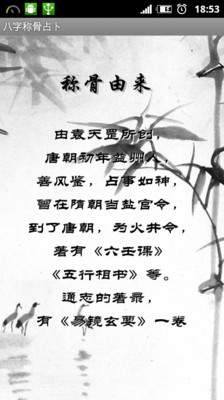 18:53
八字称骨占卜
称骨由来
由袁天罡所创，
唐朝初年益州人，
善风鉴，占事如神，
曾在隋朝当盐官令，
到了唐朝，为火井令，
著有《六壬课》
《五行相书》等。
通志的著录，
有《易镜玄要》一卷